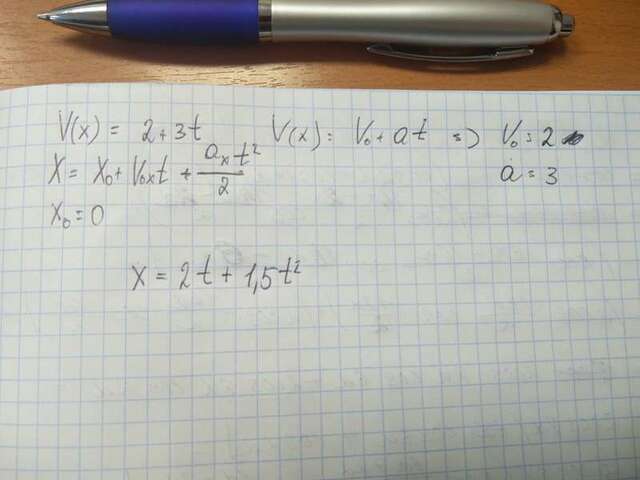 V(x) = 2+3t   V(x) = V₀ + at => V₀ = 2
X = X₀ + V₀ₓt + aₓt²/2   a = 3
X₀ = 0
X = 2t + 1,5t²